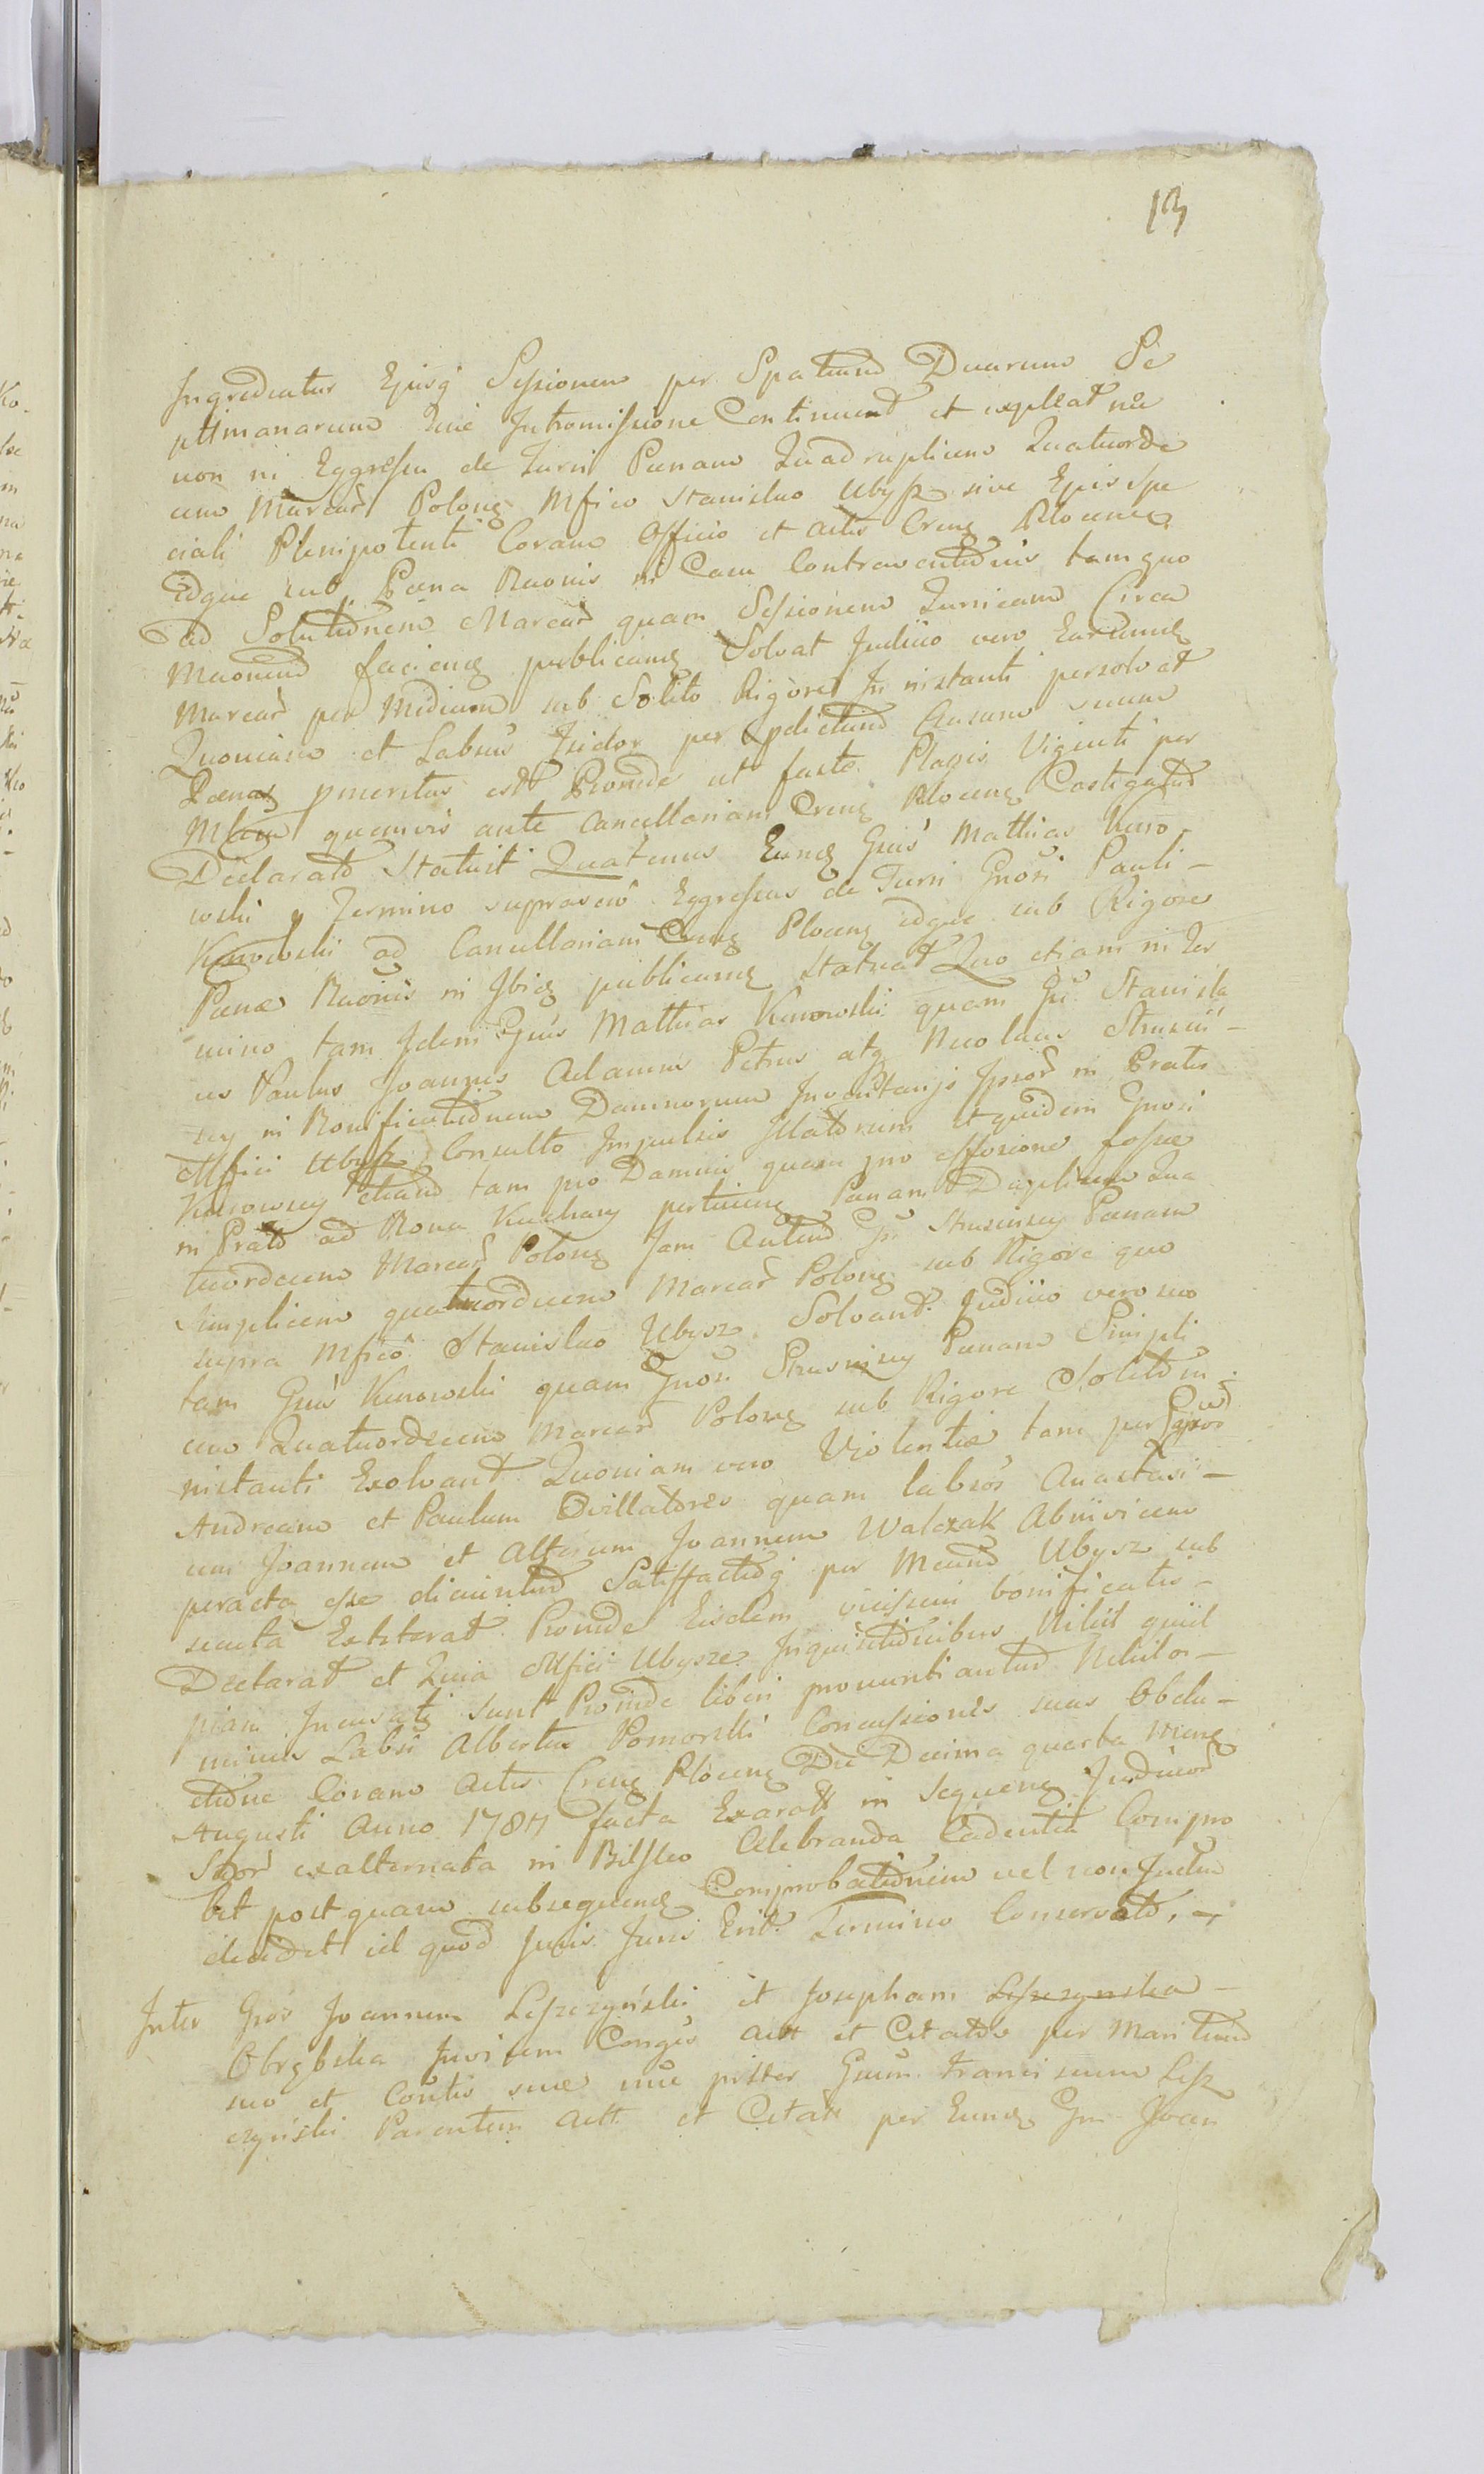 13
Ingrediatur Ejusq Sessionem per Spatium Duarum Se
ptimanarum Sine Intromissione Continuet et expleat nec
non in Eggressu de Turri Poenam Quadruplicem Quatuorde
cim Marcar Polonq Mfico Stanislao Ubysz sive Ejus Spe
ciali Plenipotenti Coram Officio et actis Crens Plocens
idque sub Poena Baonis in Casu Contraventionis tam quo
ad Solutionem Marcar quam Sessionem Turricam Circa
faciens publicans Solvat Judicio vero Earund
Marcar per Medium sub Solito Rigore In instanti persolvat
Quoniam et Labsus Isidor per Ausum suum
Poenas pmeritus est Proinde ut facto Plagis Viginti per
quemvis ante Cancellariam Crens Plocens Castigatur
Declarat Statuit Quatenus Eund Gsus Mathias Kuro
wski Termino suprascio Eggressus de Turri Gnosi Pauli -
Kurowski ad Cancellariam Crens Plocens idque sub Rigore
Poenae Baonis in Ibid publicans Statuat Quo etiam in Ter
mino tam Idem Gsus Mathias Kurowski quam Gsi Stanisla
us Paulus Joannes Adamus Petrus atq Nicolaus Strusiń -
scy in Bonificationem Damnorum Inventarijs Ipsor in Pratis
Mfici Ubysz Consulto Impulsis Illatorum et quidem Gnosi
Kurowscy tam pro Damnis quam pro effosione fossae
in Prato ad Bona Kuchary pertinens Poenam Duplicem Qua
tuordecim Marcar Polonq Jam Autem Gsi Strusinscy Poenam
Simplicem quatuordecim Marcar Polonq sub Rigore quo
supra Mfico Stanislao Ubysz Solvant Judicio vero suo
tam Gsus Kurowski quam Gnosi Strusinscy Poenam Simpli
cem Quatuordecim Marcar Polonq sub Rigore Solito in
instanti Exolvant Quoniam vero Violentiae tam per
Andream et Paulum Dvillatores quam labsos Anastasi -
um Joannem et Alterum Joannem Walczak Abinvicem
peracta esse dicuntur Satisfactioq per Ubysz sub
secuta Extiterat Proinde Eisdem vicissim bonificatis -
Declarat et Quia Mfici Ubysz Inquisitionibus Nihil quid
piam Incusati sunt Proinde liberi pronuntiantur Nihilo -
minus Labsi Alberti Pomorski Concussiones suas Obdu -
ctione Coram Actis Crens Plocens Die Decima quarta Mens
Augusti Anno 1784 facta Exaratt in sequens Judicior
exalternata in Bilsko Celebranda Cadentia Compro
bet post quam subsequend Comprobationem vel non factam
decidet id quod Juris Juris Erit Termino Conservato. -
Inter Gsos Joannem Leszczyński et Josepham Leszczynska -
Obrębska Invicem Conges Actt et Citatos per Maritum
suo et Contis suae nec pstter Gsum Franciscum Lesz
czyński Parentem Actt et Citatt per Eund Gsm Joan